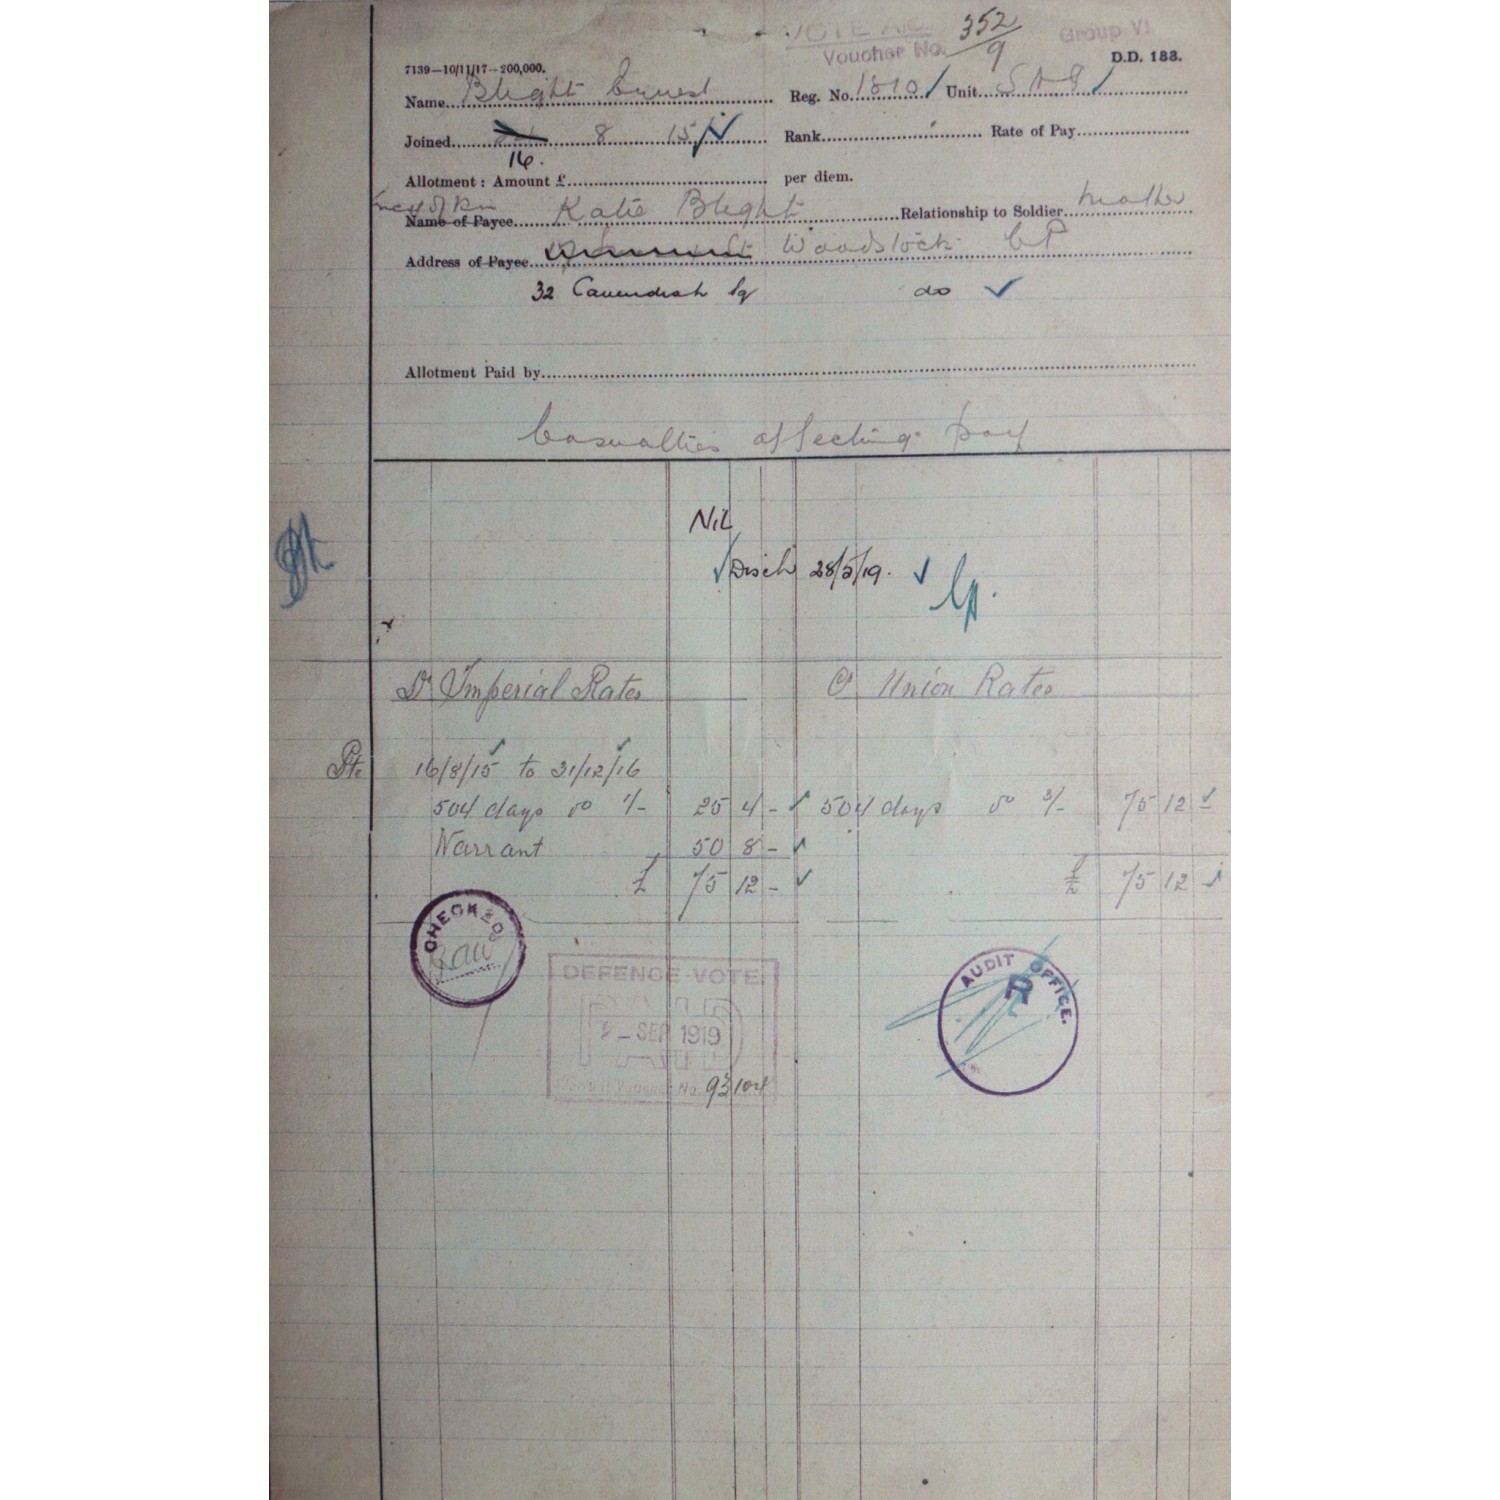 VOTE A/C.
Voucher No. 352/9 Group VI
7139—10/11/17—200,000. D.D. 183.
Name Blight Ernest Reg. No. 1810 Unit
Joined 8 15 Rank Rate of Pay
16.
Allotment : Amount £ per diem.
next of kin
Name of Payee Katie Blight Relationship to Soldier Mother
Address of Payee Woodstock CP
32 Cavendish Sq do
Allotment Paid by
Casualties affecting pay
Nil
Disch 28/5/19.
Dr Imperial Rates Cr Union Rates
Pte 16/8/15 to 31/12/16
504 days @ 1/- 25 4 - 504 days @ 3/- 75 12 -
Warrant 50 8 -
£ 75 12 - £ 75 12 -
CHECKED
DEFENCE VOTE
PAID
2 - SEP 1919
Voucher No. 93104
AUDIT OFFICE.
R